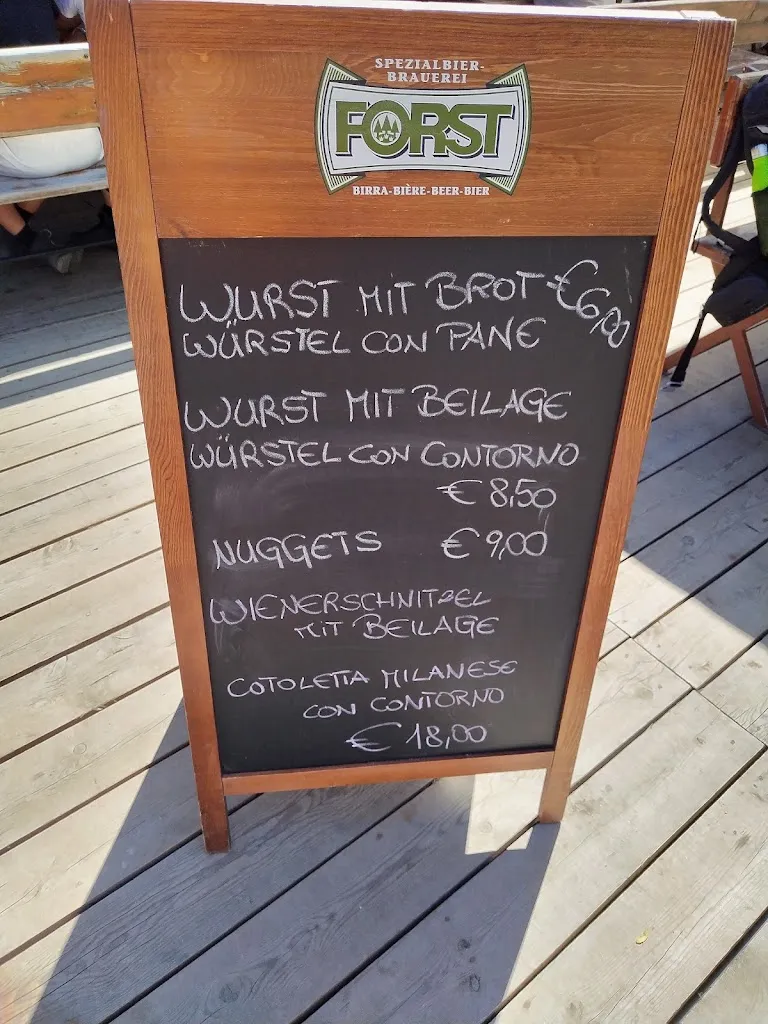 SPEZIALBIER-
BRAUEREI
FORST
BIRRA-BIÈRE-BEER-BIER
WURST MIT BROT €6,00
WÜRSTEL CON PANE
WURST MIT BEILAGE
WÜRSTEL CON CONTORNO
€ 8,50
NUGGETS € 9,00
WIENERSCHNITZEL
MIT BEILAGE
COTOLETTA MILANESE
CON CONTORNO
€ 18,00